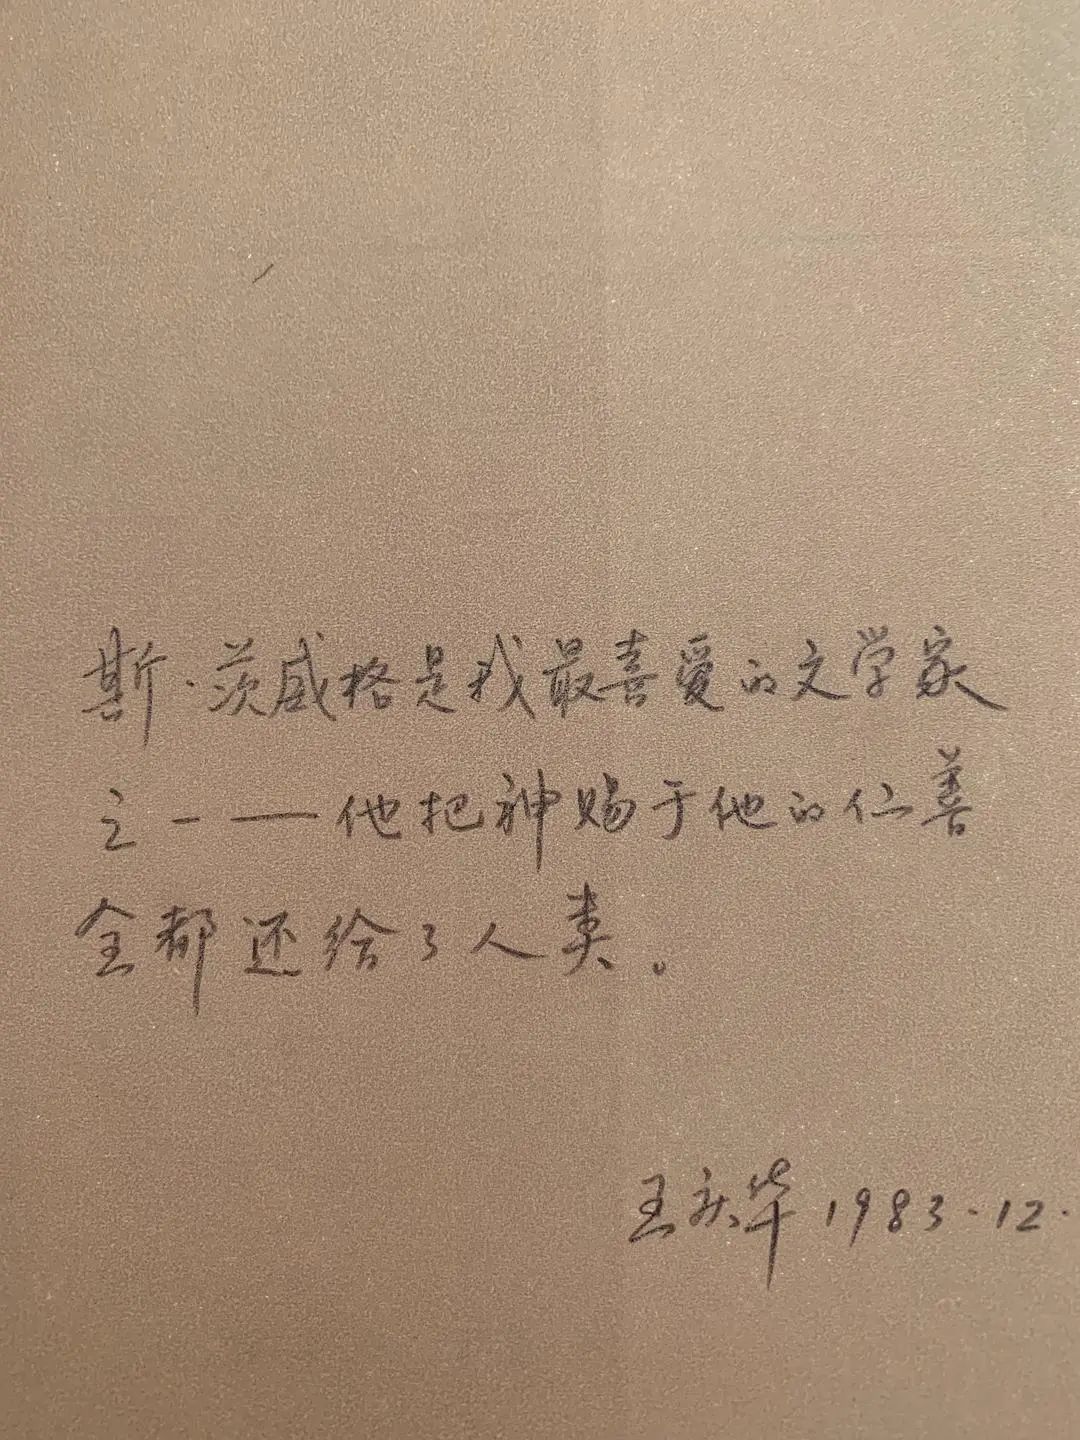 斯·茨威格是我最喜爱的文学家
之一——他把神赐于他的仁善
全都还给了人类。
王庆华 1983·12·